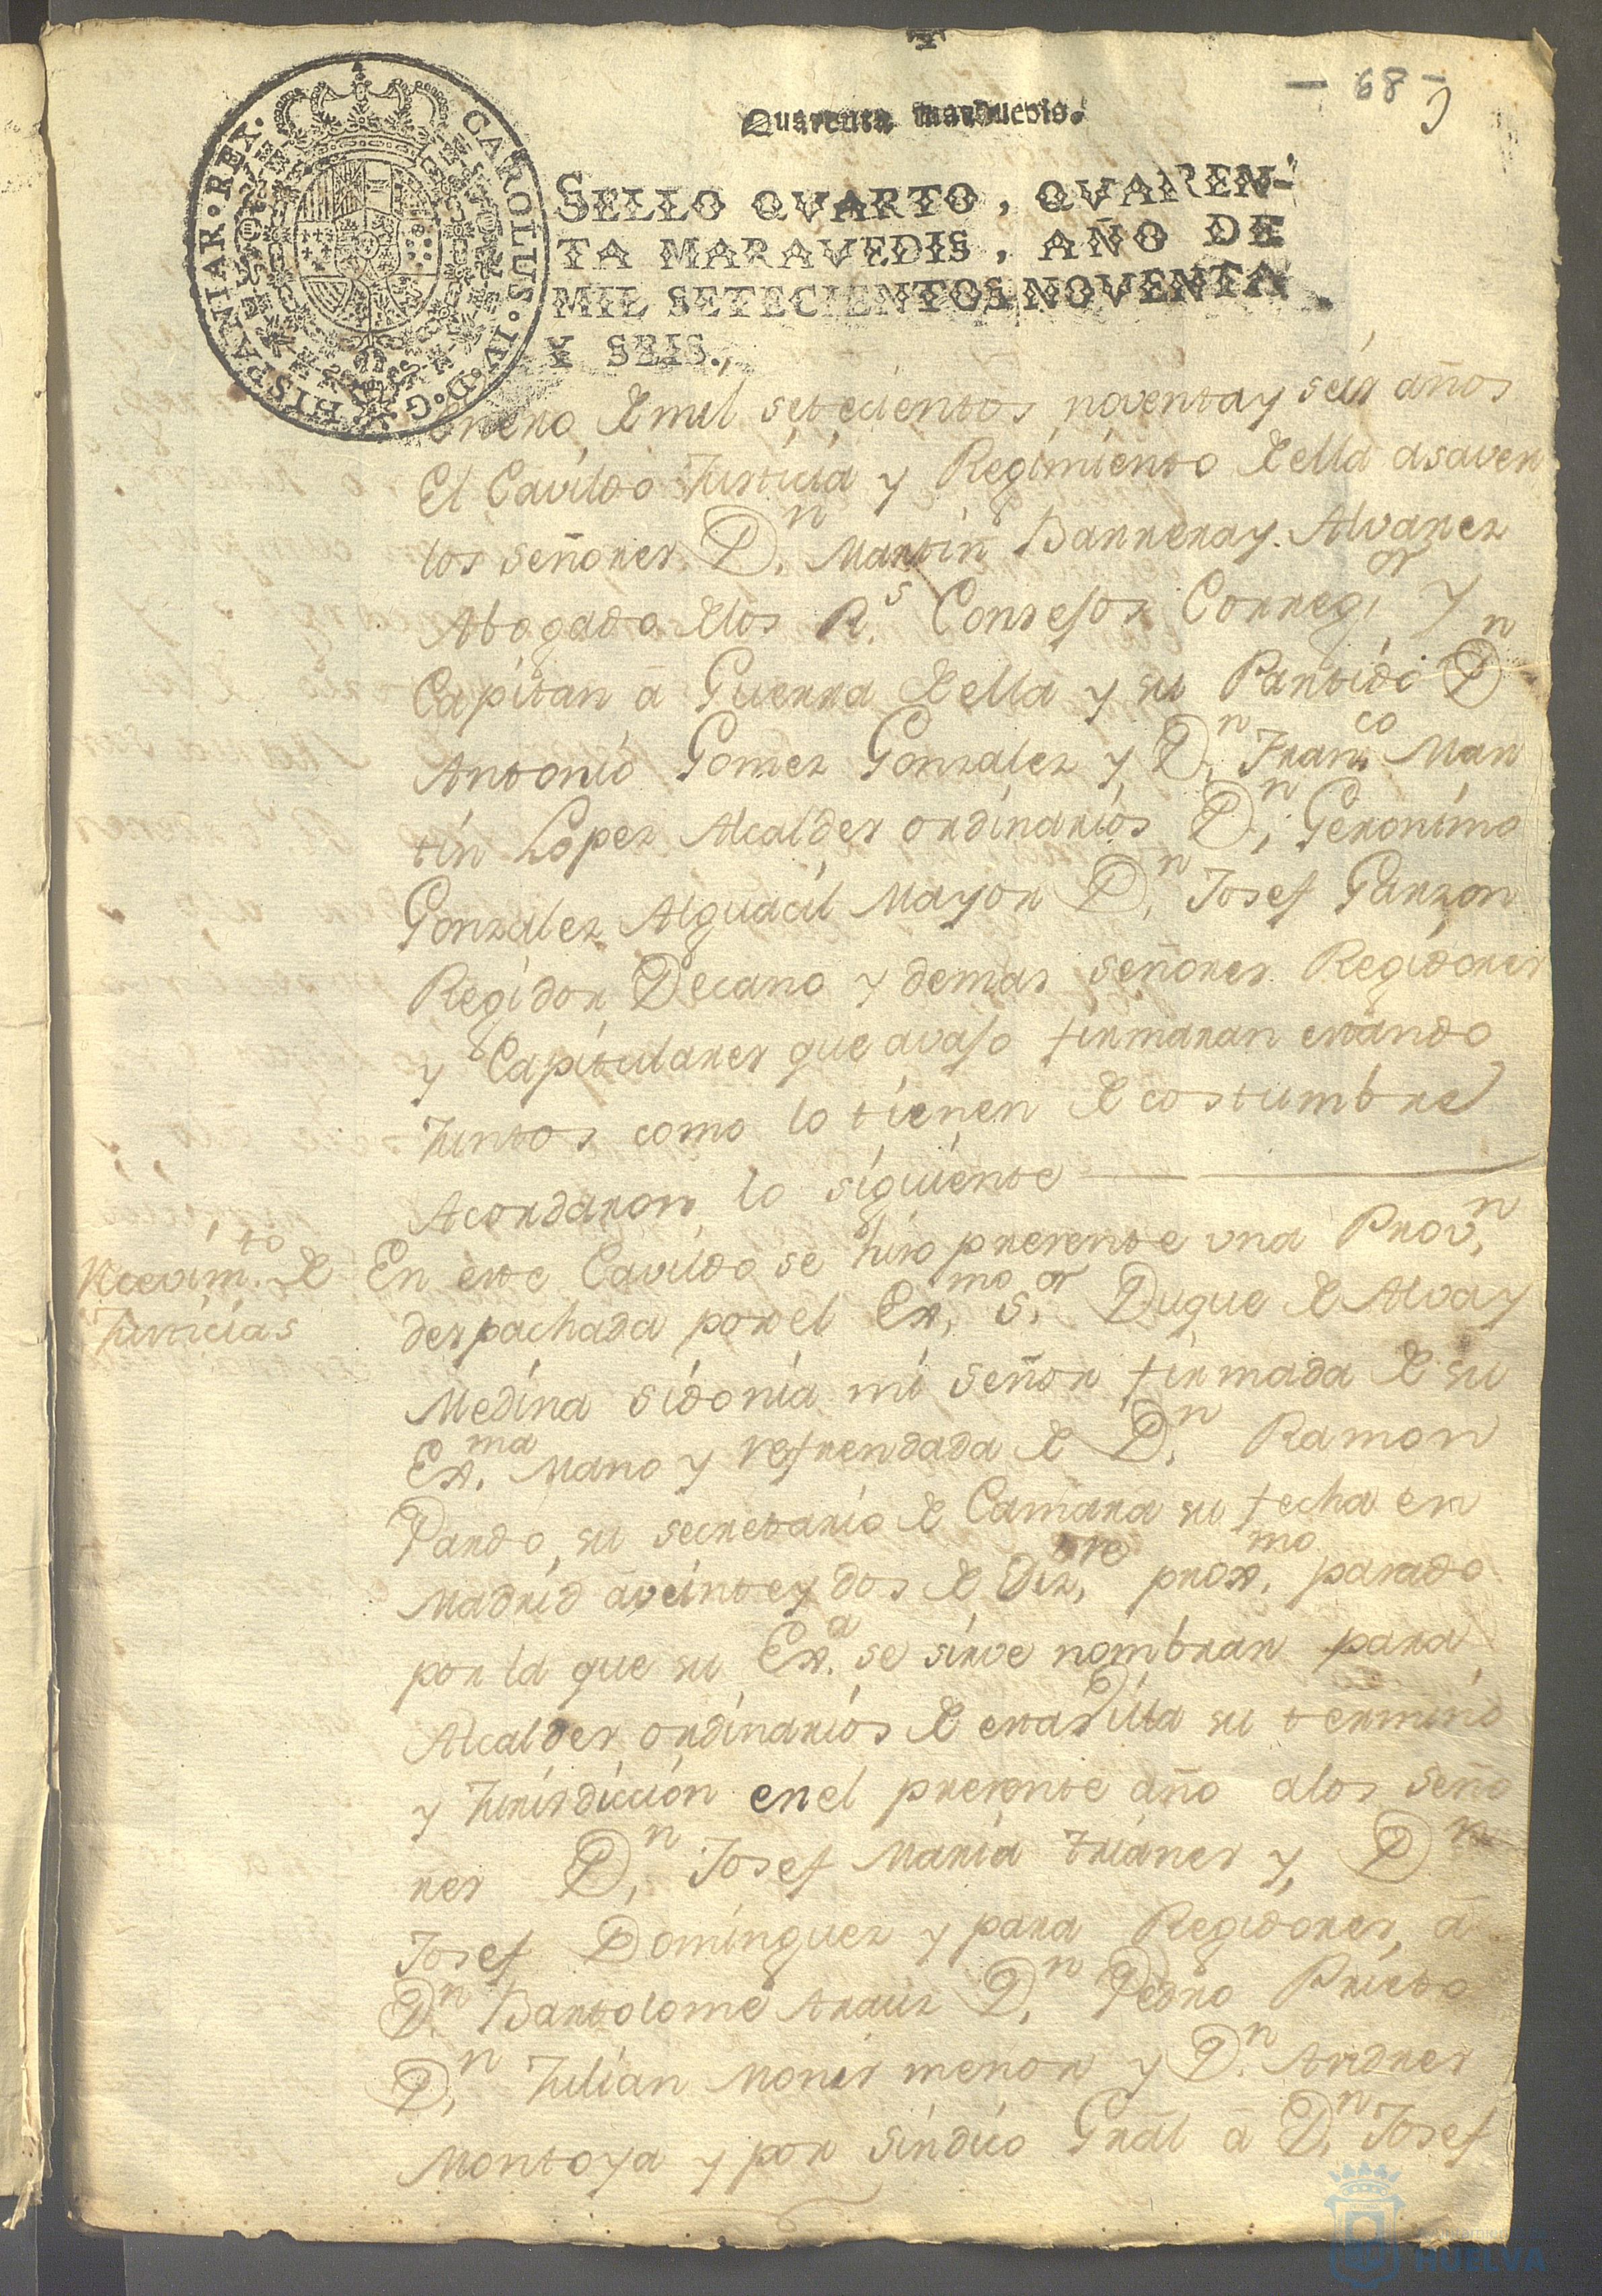 - 68 -
Quarenta maravedis.
SELLO QVARTO, QVAREN-
TA MARAVEDIS, AÑO DE
MIL SETECIENTOS NOVENTA
Y SEIS.
CAROLUS·IV·D·G·HISPANIAR·REX·
Enero de mil setecientos noventa y seis años
El Cavildo Justicia y Regimiento de ella asaver
los señores Dn. Martin Barrera y Alvarez
Abogado de los Rs. Consejos Corregor. y
Capitan á Guerra de ella y su Partido Dn
Antonio Gomez Gonzalez y Dn. Franco. Mar
tin Lopez Alcaldes ordinarios Dn. Geronimo
Gonzalez Alguacil Mayor Dn. Josef Garzon
Regidor Decano y demas señores Regidores
y Capitulares que avajo firmaran estando
Juntos como lo tienen de costumbre
Acordaron lo siguiente
Recevimto. de
Justicias
En este Cavildo se hizo presente una Provn.
despachada por el Exmo. Sor. Duque de Alva y
Medina sidonia mi señor firmada de su
Exma. Mano y refrendada de Dn. Ramon
Pardo, su secretario de Camara su fecha en
Madrid á veinte y dos de Dizre. proxmo. pasado
por la que su Exa. se sirve nombrar para
Alcaldes ordinarios de esta Villa su termino
y Jurisdiccion en el presente año a los seño
res Dn. Josef Maria Trianes y Dn
Josef Dominguez y para Regidores, á
Dn. Bartolome Arauz Dn. Pedro Prieto
Dn. Julian Monis menor y Dn. Andres
Montoya y por sindico Grãl á Dn. Josef
HUELVA